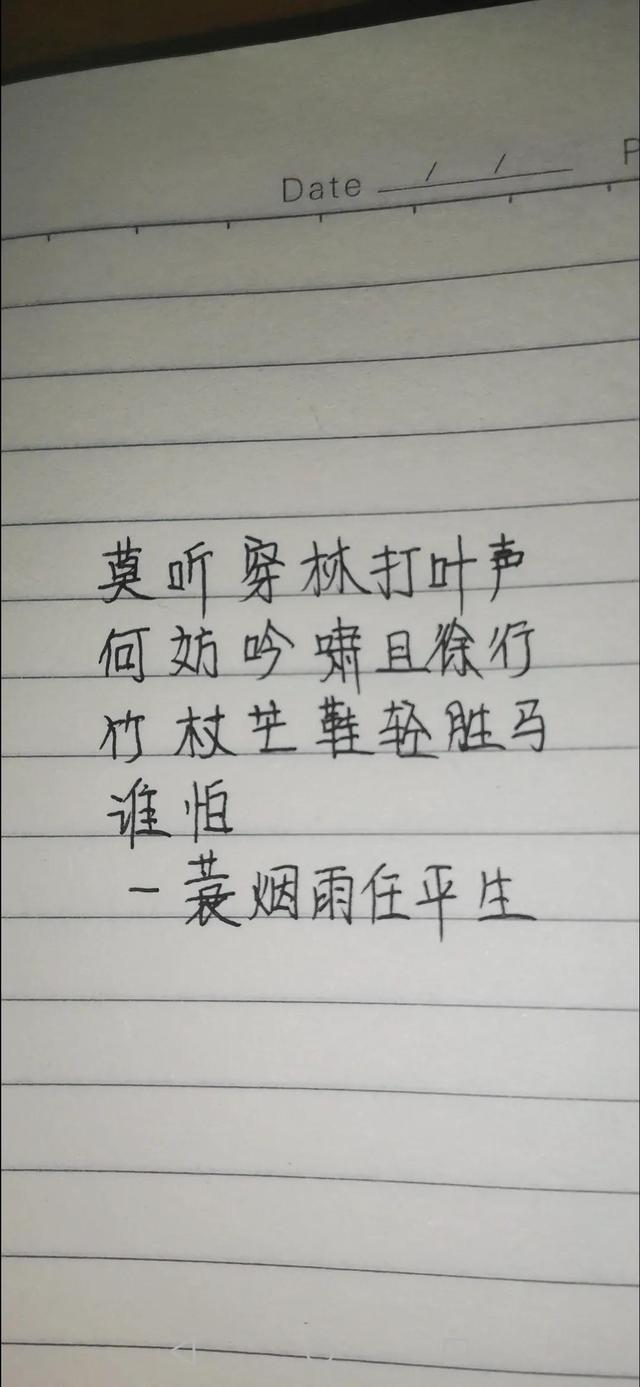 Date / /
P
莫听穿林打叶声
何妨吟啸且徐行
竹杖芒鞋轻胜马
谁怕
一蓑烟雨任平生